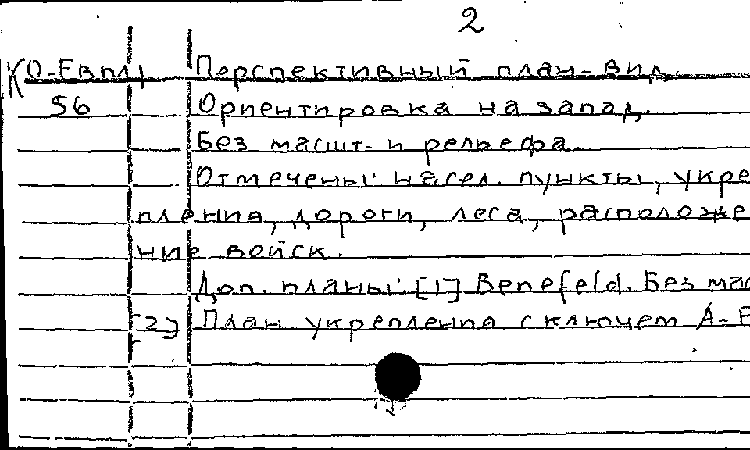 2
КО-Евпл, Перспективный план-вид.
56 Ориентировка на запад.
Без масшт. и рельефа.
Отмечены: насел. пункты, укре
пления, дороги, леса, расположе
ние войск.
Доп. планы: [1] Benefeld. Без мас
[2] План укрепления с ключем А-Е